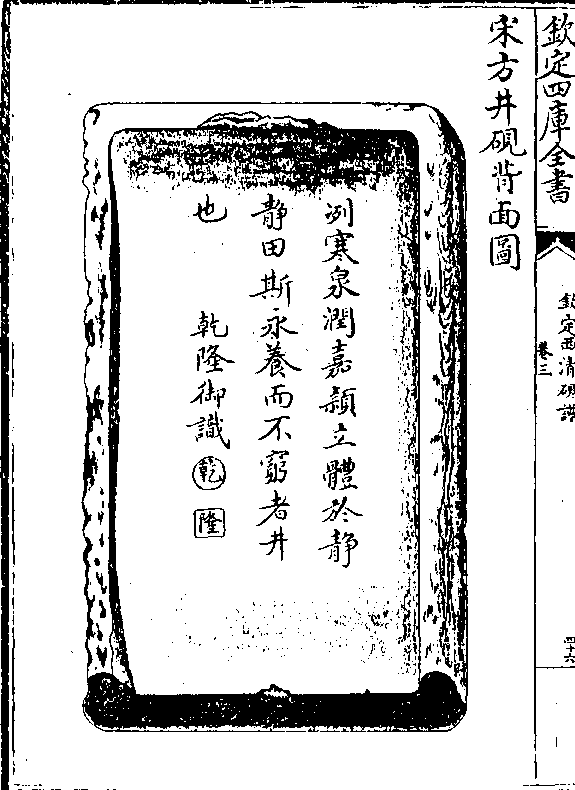 欽定四庫全書
欽定西清硯譜
卷三
四十六
宋方井硯背面圖
冽寒泉潤嘉穎立體於静
静田斯永養而不窮者井
也
乾隆御識
乾
隆